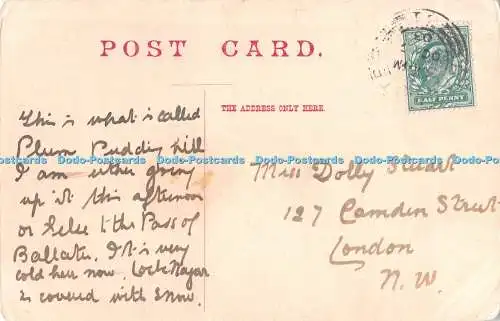 POST CARD.
THE ADDRESS ONLY HERE.
HALF PENNY
This is what is called
Plum Pudding hill
I am either going
up it this afternoon
or else to the Pass of
Ballater. It is very
cold here now. Loch Nagar
is covered with snow.
Miss Dolly Stuart
127 Camden Street
London
N.W.
Dodo-Postcards Dodo-Postcards Dodo-Postcards Dodo-Postcards Dodo-Postcards Dodo-Postcards